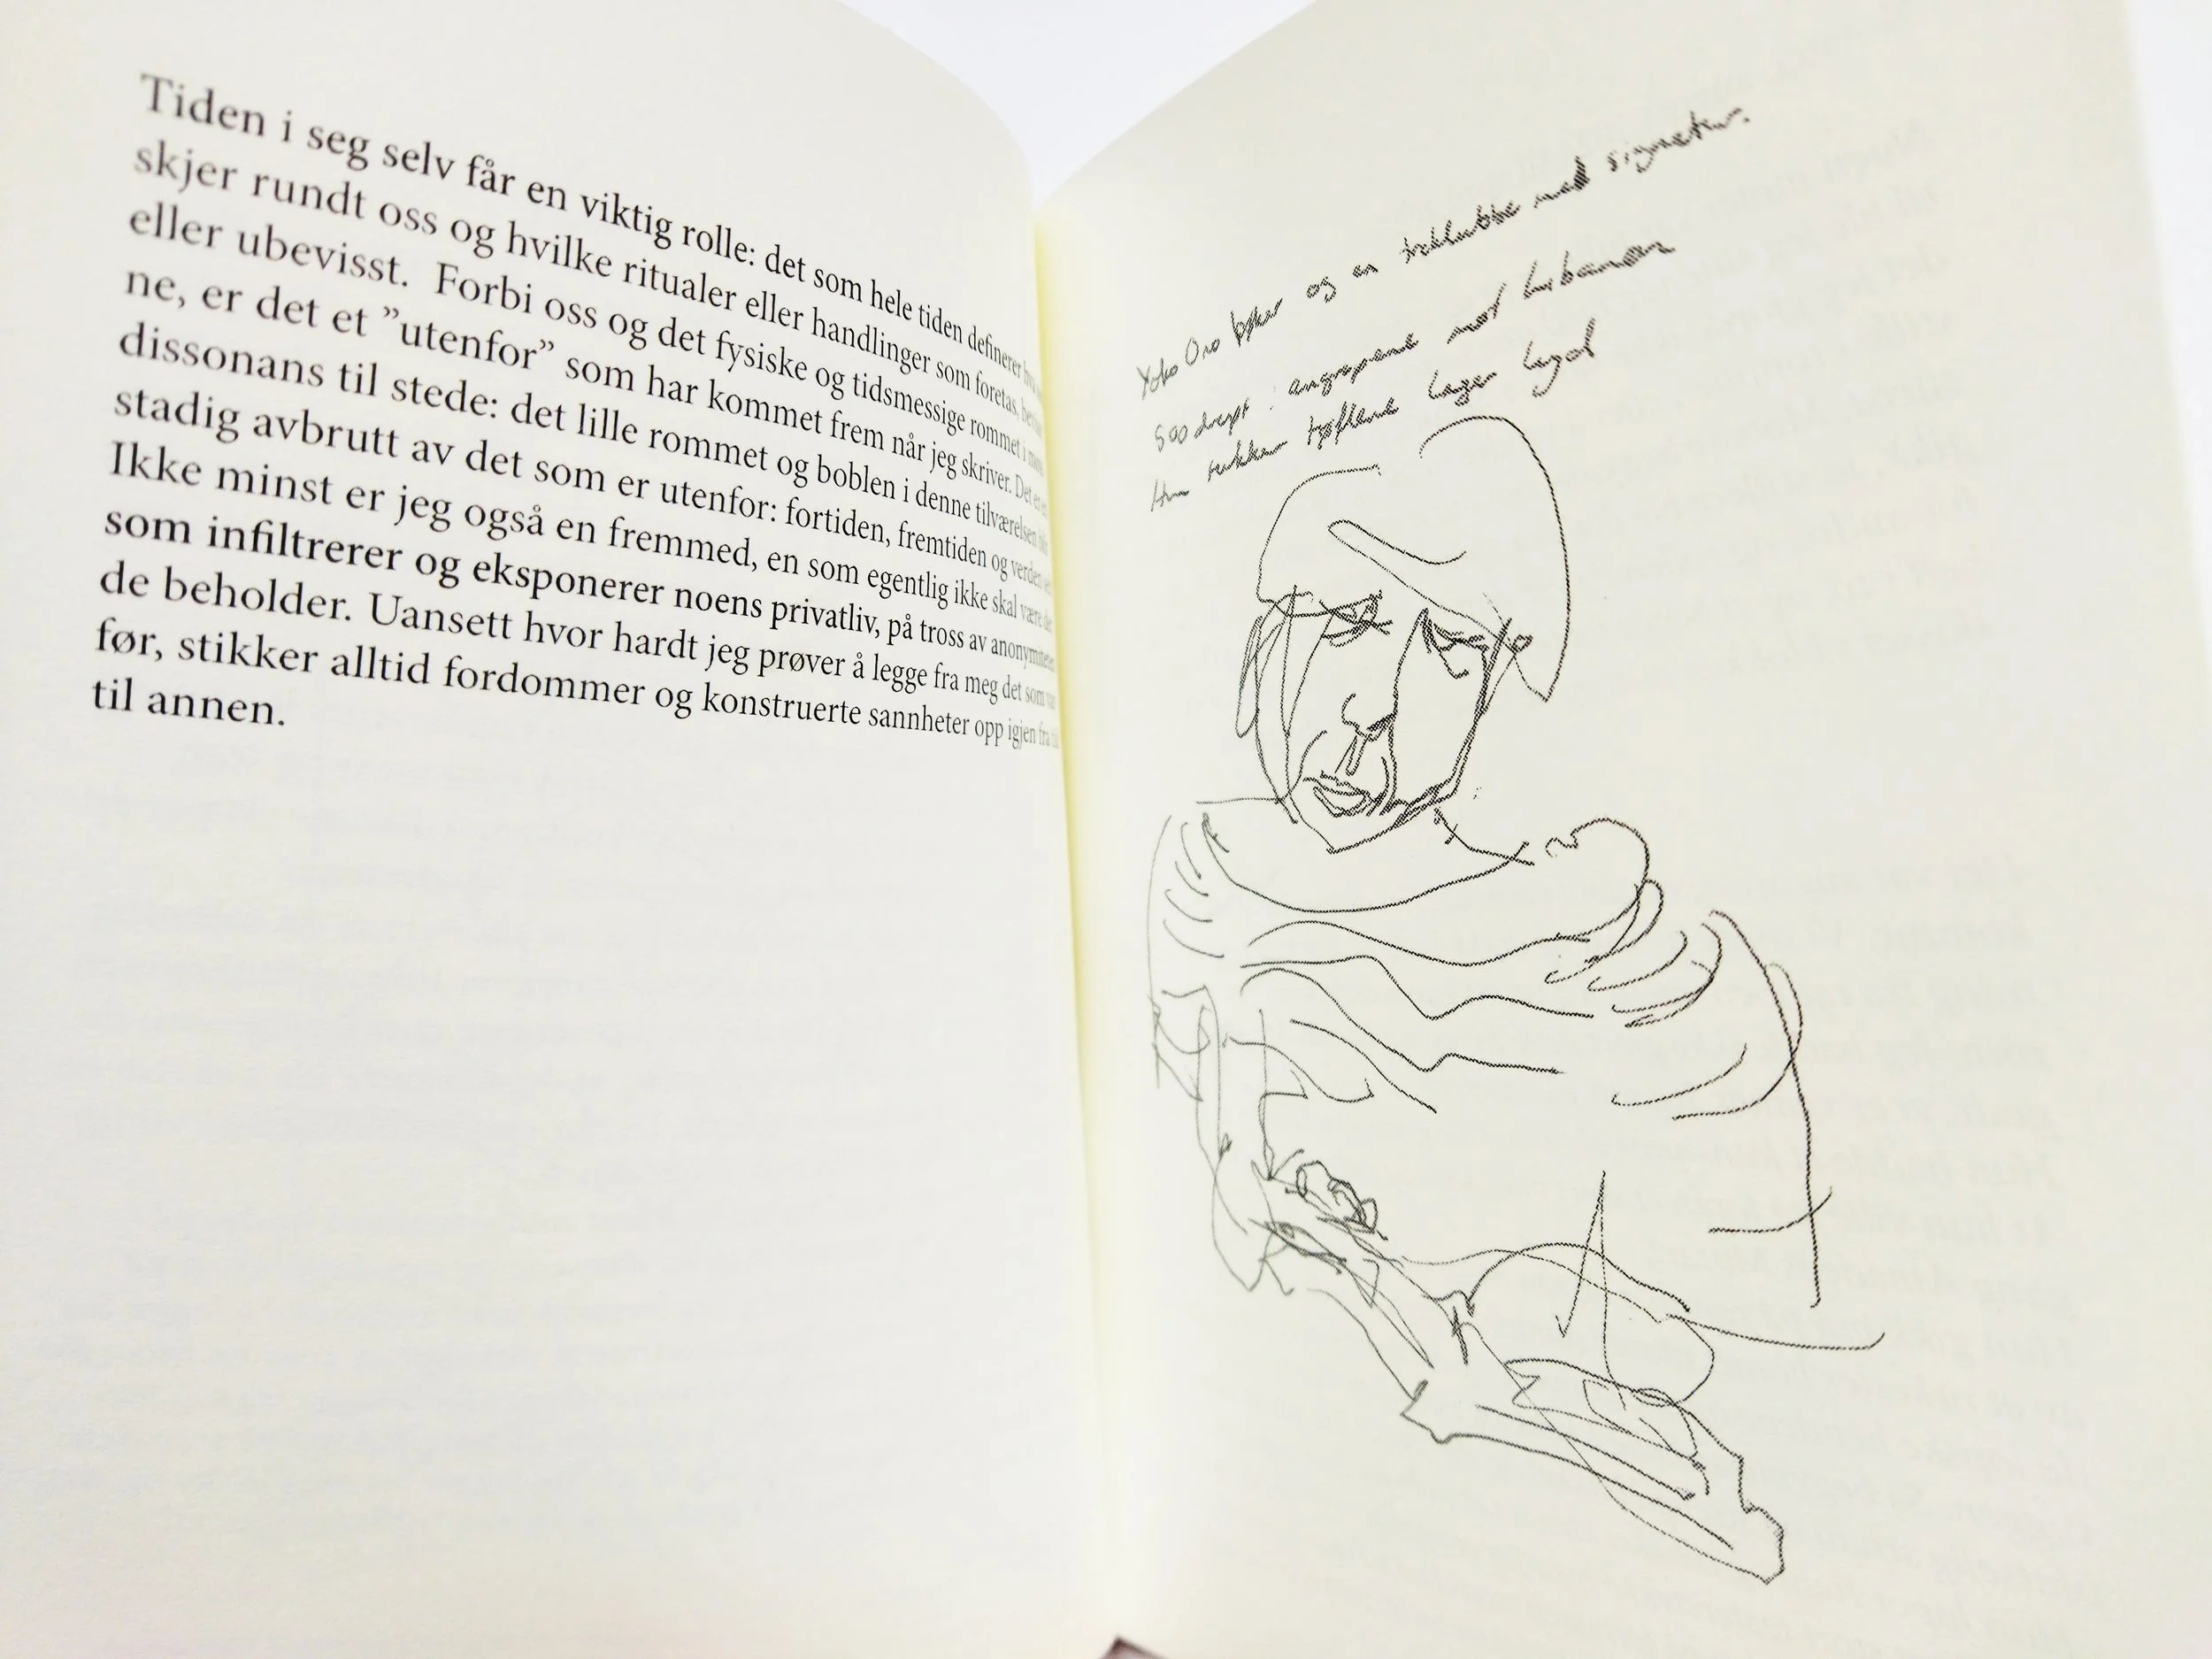 Tiden i seg selv får en viktig rolle: det som hele tiden definerer hva
skjer rundt oss og hvilke ritualer eller handlinger som foretas,
eller ubevisst. Forbi oss og det fysiske og tidsmessige rommet i
ne, er det et ”utenfor” som har kommet frem når jeg skriver. Det er en
dissonans til stede: det lille rommet og boblen i denne tilværelsen blir
stadig avbrutt av det som er utenfor: fortiden, fremtiden og verden
Ikke minst er jeg også en fremmed, en som egentlig ikke skal være der
som infiltrerer og eksponerer noens privatliv, på tross av anonymiteten
de beholder. Uansett hvor hardt jeg prøver å legge fra meg det som var
før, stikker alltid fordommer og konstruerte sannheter opp igjen fra tid
til annen.
Yoko Ono og en med signatur.
500 drept i angrepene mot Libanon
tøflene lager lyd